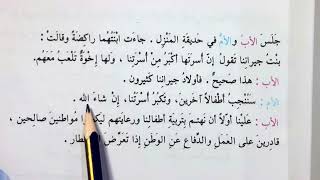 جَلَسَ الأَبُ والأُمُّ في حَديقَةِ المَنْزِلِ . جاءَت ابْنَتُهُما راكِضَةً وقالَتْ :
بِنْتُ جيرانِنا تَقولُ إنَّ أُسرَتَها أكْبَرُ مِنْ أُسْرَتِنا ، ولَها إخْوَةٌ تَلْعَبُ مَعَهُم.
الأَب : هذا صَحيحٌ . فأولادُ جيرانِنا كَثيرون .
الأُم : سَنُنْجِبُ أطْفالاً آخَرينَ، وتَكْبُرُ أُسْرَتُنا، إنْ شاءَ الله .
الأَب : عَلَيْنا أوَّلاً أن نَهتَمَّ بِتَربِيَةِ أطفالِنا ورِعايَتِهِم مُواطنينَ صالِحين ،
قادِرينَ على العَمَلِ والدِّفاعِ عَنِ الوَطَنِ إذا تَعَرَّضَ